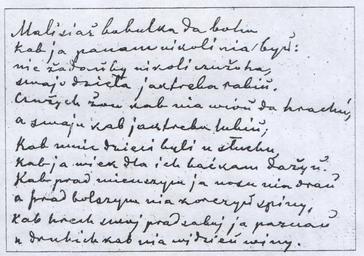 Malisia ž babulka da bohu
Kab ja panam nikoli nia byŭ:
nie žadaŭby nikoli cužoha,
swaju dzieła jak treba rabiŭ.
Cužych žon kab nia wioŭ da hrachu,
a swaju kab jak treba lubiŭ,
Kab mnie dzieci byli u słuchu,
Kab ja wiek dla ich baćkam dažyŭ.
Kab prad mienszym ja nosu nia draŭ
a prad bolszym nia korczyŭ spiny,
Kab hrech swoj prad saboj ja paznaŭ
u druhich kab nia widzieŭ winy.